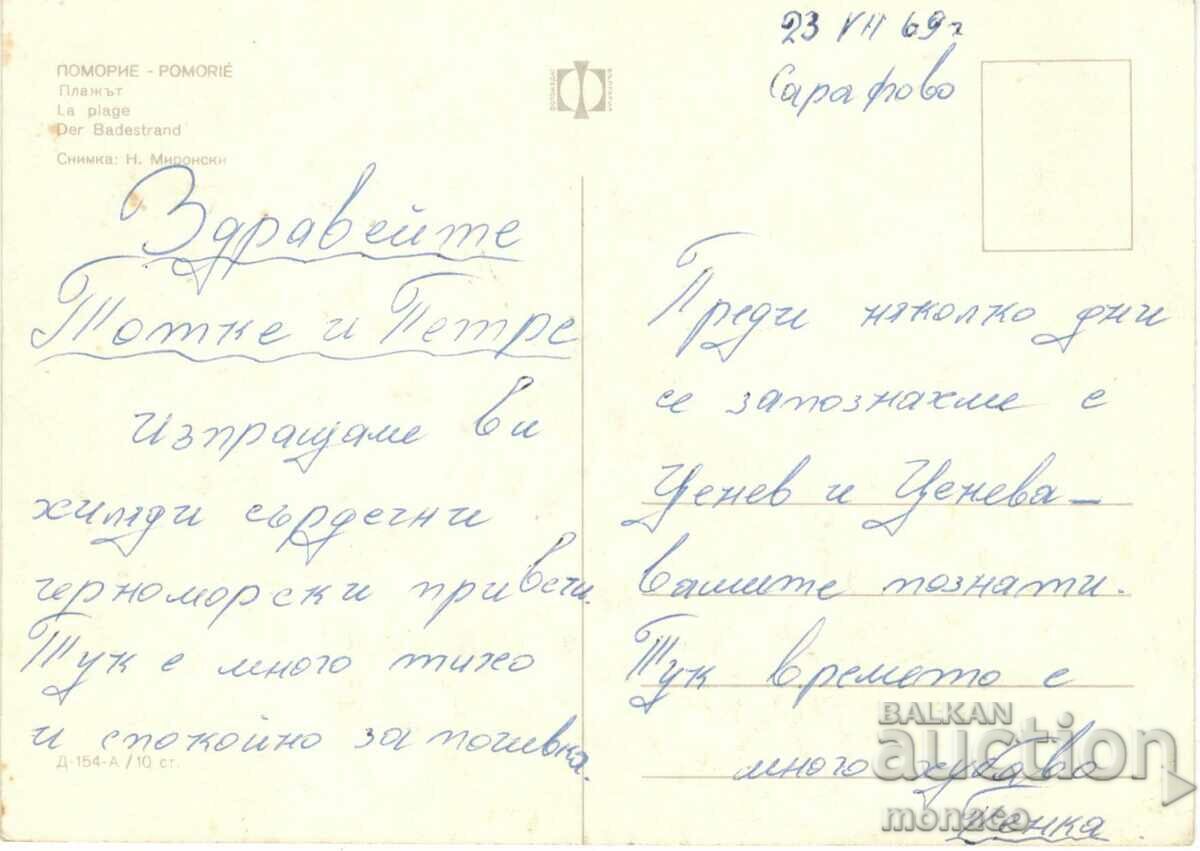 ПОМОРИЕ - POMORIÉ
Плажът
La plage
Der Badestrand
Снимка: Н. Миронски
23 VII 69 г
Сарафово
Здравейте
Тотке и Петре
изпращаме ви
хиляди сърдечни
черноморски привети.
Тук е много тихо
и спокойно за почивка.
Д-154-А / 10 ст.
Преди няколко дни
се запознахме с
Ценев и Ценева –
вашите познати.
Тук времето е
много хубаво
Пенка
BALKAN
auction